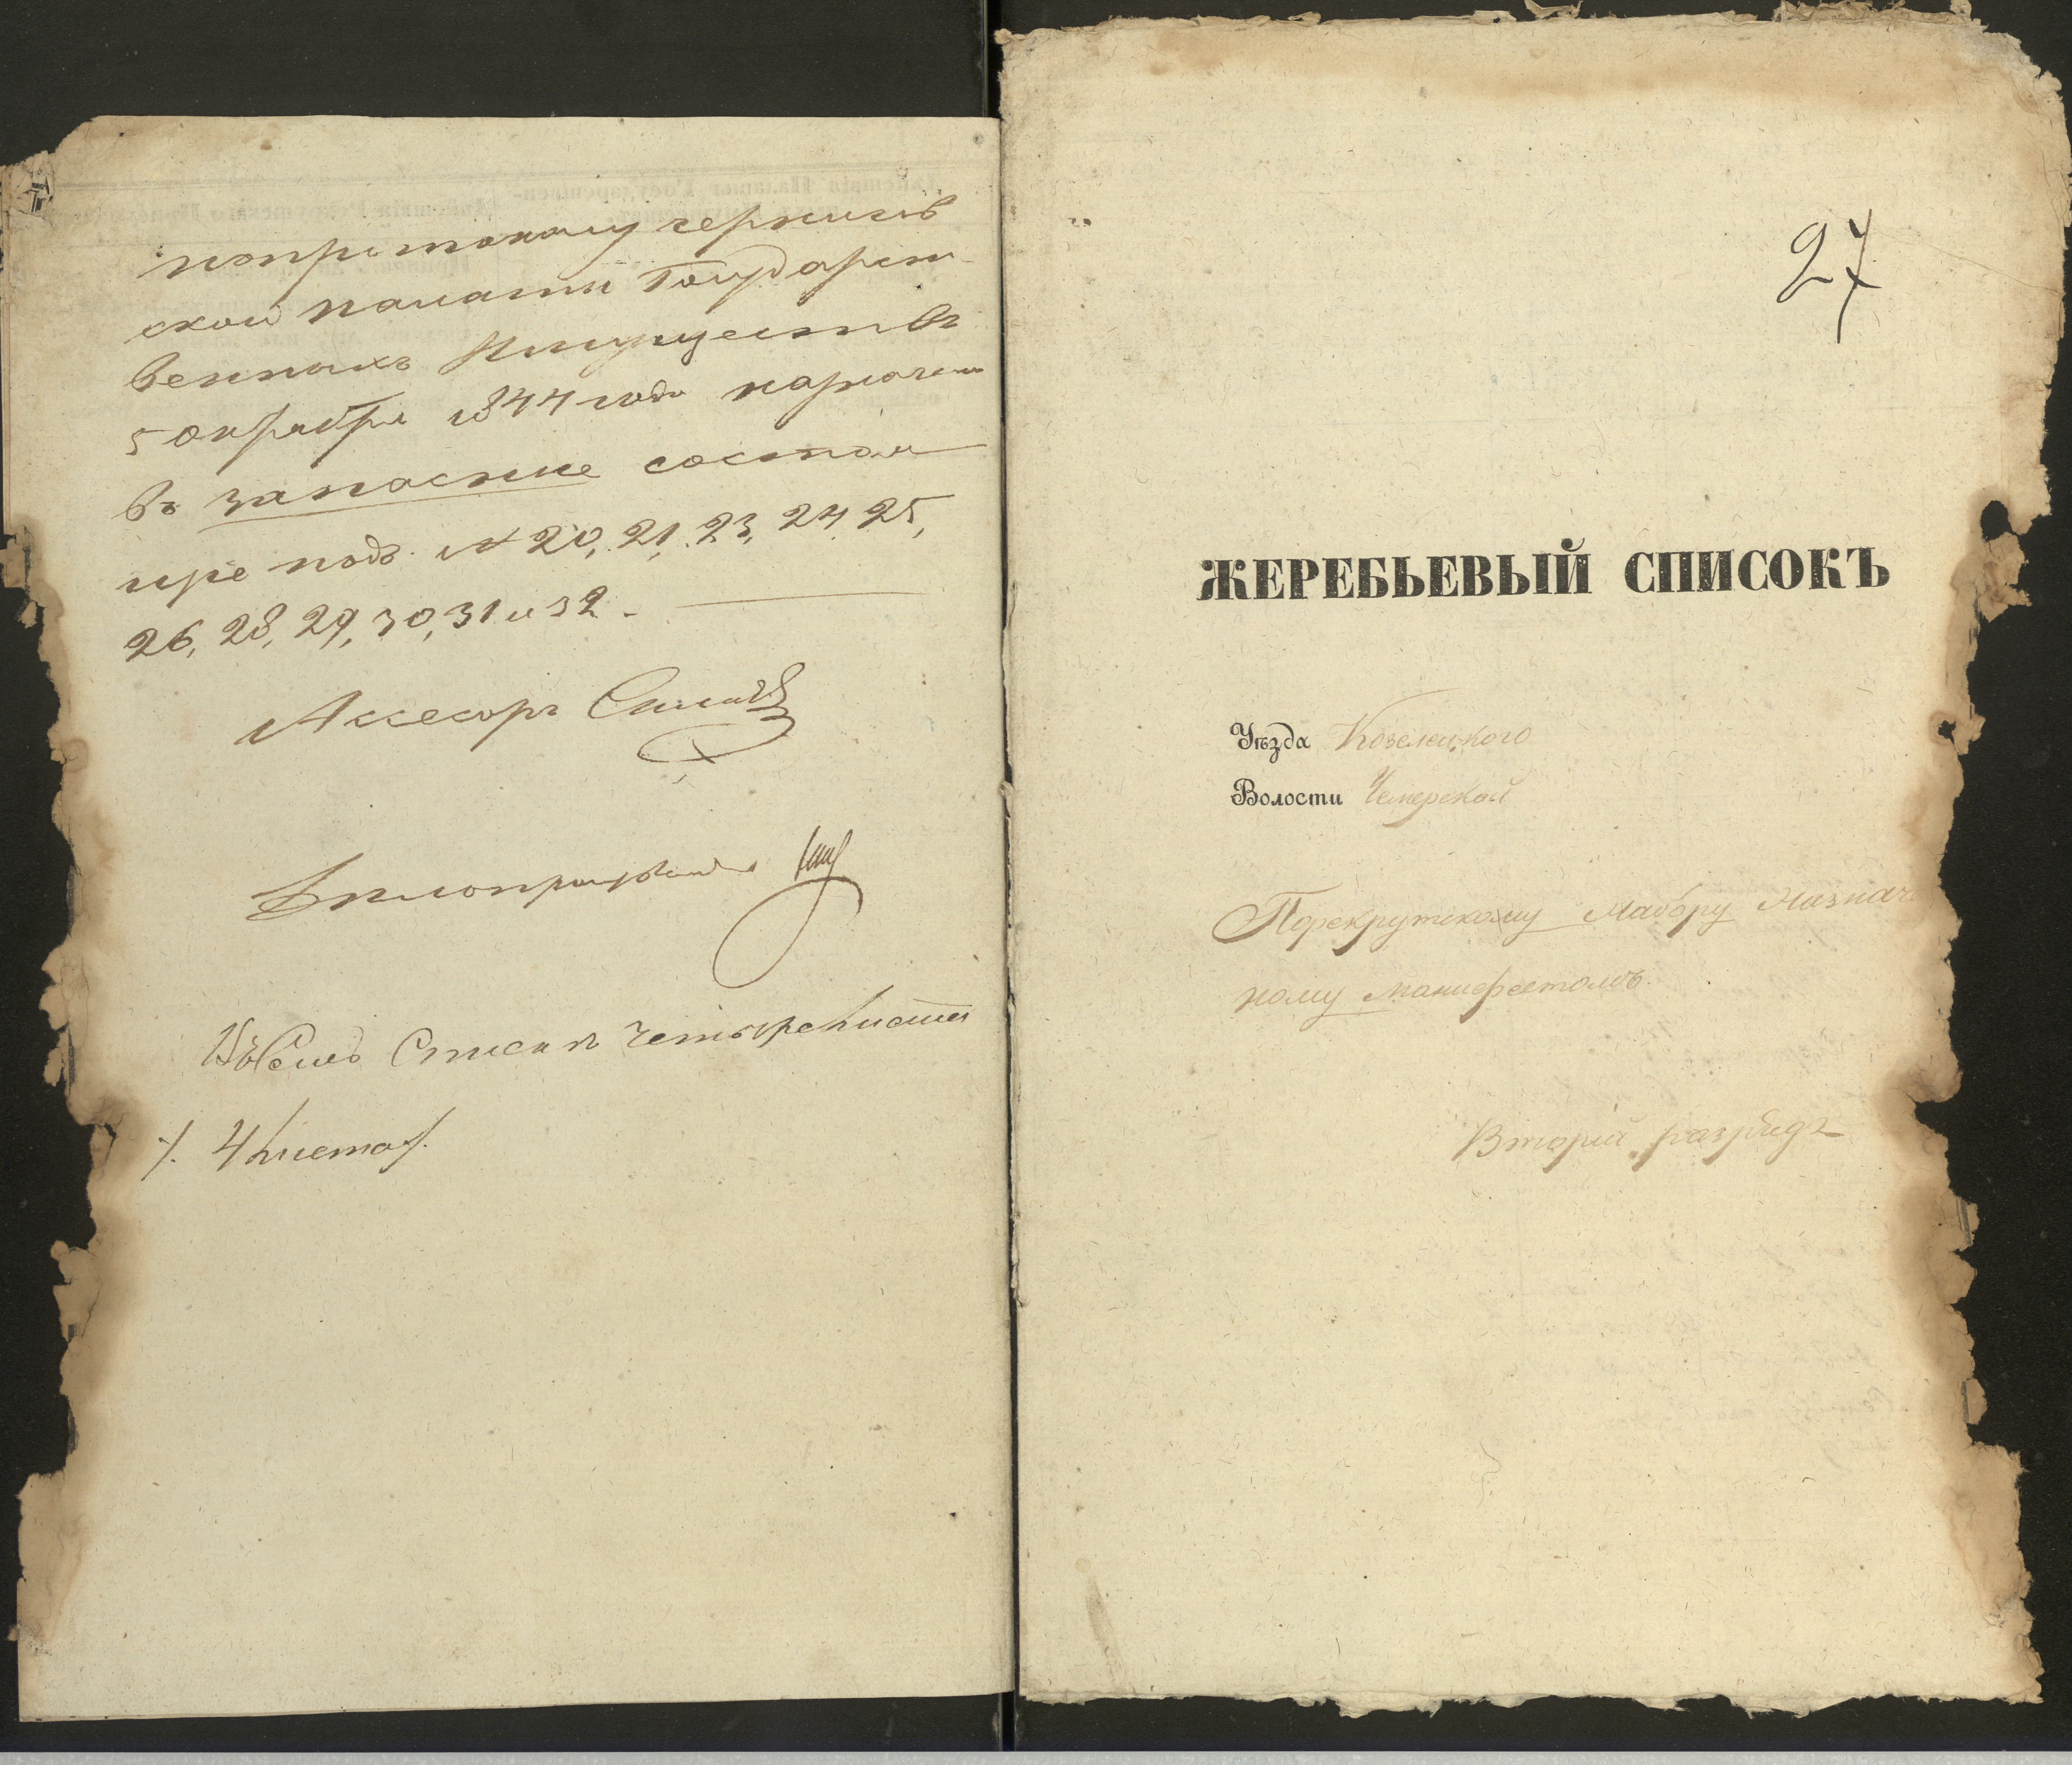 по протоколу чернигов
ской палаты Государст
венныхъ Имуществъ
5 октября 1844 года назначены
въ запасные состоя
щіе подъ № 20, 21, 23, 24, 25,
26, 28, 29, 30, 31 и 32.
Ассесоръ
Въ семъ Списке Четыре листа
4 листа
27
ЖЕРЕБЬЕВЫЙ СПИСОКЪ
Уѣзда Козелецкого
Волости Чемерской
По рекрутскому Набору Назначе
ному манифестомъ
Вторій разрядъ